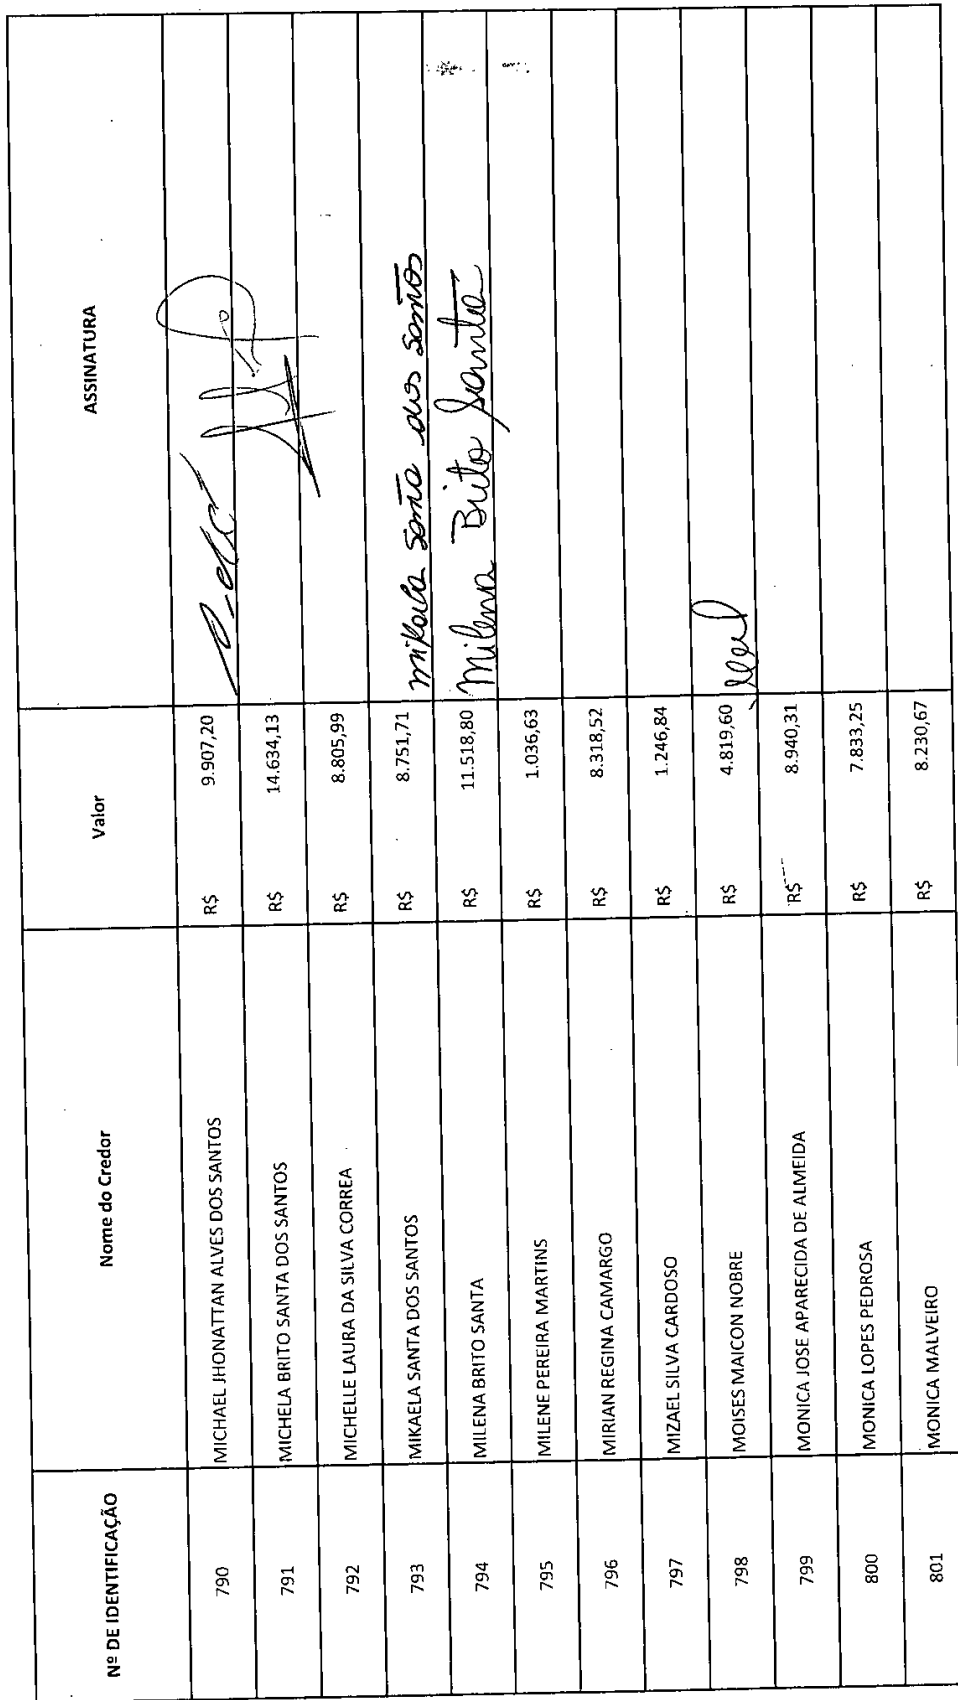 Nº DE IDENTIFICAÇÃO Nome do Credor Valor ASSINATURA
790 MICHAEL JHONATTAN ALVES DOS SANTOS R$ 9.907,20
791 MICHELA BRITO SANTA DOS SANTOS R$ 14.634,13
792 MICHELLE LAURA DA SILVA CORREA R$ 8.805,99
793 MIKAELA SANTA DOS SANTOS R$ 8.751,71 mikaela santa dos santos
794 MILENA BRITO SANTA R$ 11.518,80 Milena Brito Santa
795 MILENE PEREIRA MARTINS R$ 1.036,63
796 MIRIAN REGINA CAMARGO R$ 8.318,52
797 MIZAEL SILVA CARDOSO R$ 1.246,84
798 MOISES MAICON NOBRE R$ 4.819,60
799 MONICA JOSE APARECIDA DE ALMEIDA R$ 8.940,31
800 MONICA LOPES PEDROSA R$ 7.833,25
801 MONICA MALVEIRO R$ 8.230,67